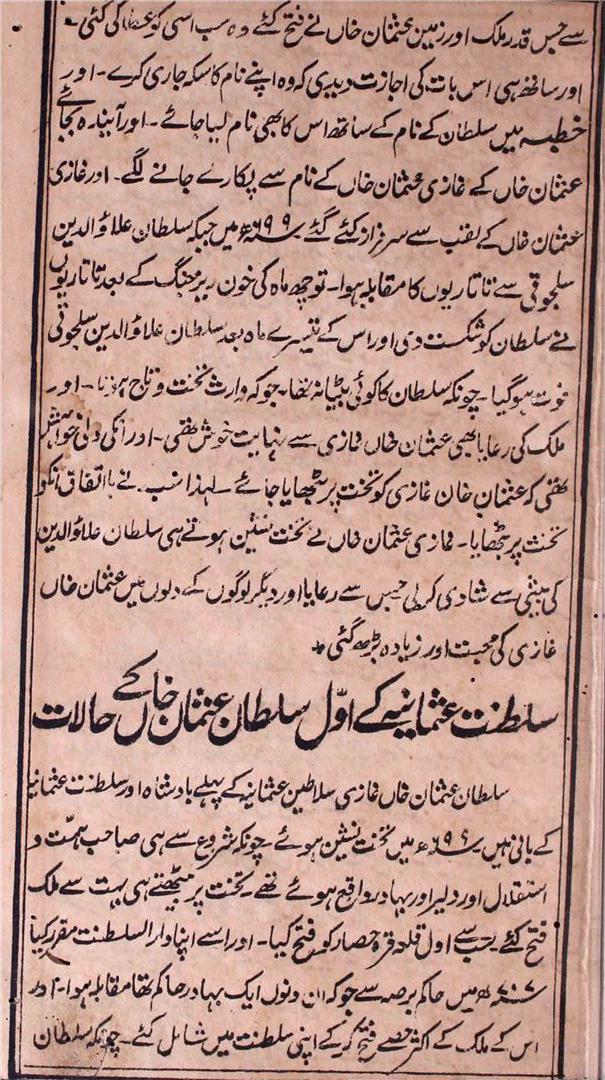 سے جس قدر ملک اور زمین عثمان خاں نے فتح کئے وہ سب اسی کو عطا کی گئی۔
اور ساتھ ہی اس بات کی اجازت دیدی کہ وہ اپنے نام کا سکہ جاری کرے۔ اور
خطبہ میں سلطان کے نام کے ساتھ اس کا بھی نام لیا جائے۔ اور آیندہ بجائے
عثمان خاں کے غازی عثمان خاں کے نام سے پکارے جانے لگے۔ اور غازی
عثمان خاں کے لقب سے سرفراز کئے گئے۔ سنہ ۶۹۹ھ میں جبکہ سلطان علاؤالدین
سلجوقی سے تاتاریوں کا مقابلہ ہوا۔ تو چھ ماہ کی خون ریز جنگ کے بعد تاتاریوں
نے سلطان کو شکست دی اور اس کے تیسرے ماہ بعد سلطان علاؤالدین سلجوقی
فوت ہوگیا۔ چونکہ سلطان کا کوئی بیٹا نہ تھا۔ جو کہ وارث تخت و تاج ہوتا۔ اور
ملک کی رعایا بھی عثمان خاں غازی سے نہایت خوش تھی۔ اور انکی دلی خواہش
تھی کہ عثمان خان غازی کو تخت پر بٹھایا جائے۔ لہذا سب نے بااتفاق انکو
تخت پر بٹھایا۔ غازی عثمان خاں نے تخت نشین ہوتے ہی سلطان علاؤالدین
کی بیٹی سے شادی کرلی جس سے رعایا اور دیگر لوگوں کے دلوں میں عثمان خاں
غازی کی محبت اور زیادہ بڑھ گئی ۔
سلطنت عثمانیہ کے اوّل سلطان عثمان خاں کے حالات
سلطان عثمان خاں غازی سلاطین عثمانیہ کے پہلے بادشاہ اور سلطنت عثمانیہ
کے بانی ہیں سنہ ھ میں تخت نشین ہوئے چونکہ شروع سے ہی صاحب ہمّت و
استقلال اور دلیر اور بہادر واقع ہوئے تھے۔ تخت پر بیٹھتے ہی بہت سے ملک
فتح کئے۔ سب سے اول قلعہ قرہ حصار کو فتح کیا۔ اور اسے اپنا دارالسلطنت مقرر کیا
سنہ ۷۰۷ھ میں حاکم برصہ سے جو کہ ان دنوں ایک بہادر حاکم تھا مقابلہ ہوا۔ اور
اس کے ملک کے اکثر حصے فتح کرکے اپنی سلطنت میں شامل کئے۔ چونکہ سلطان